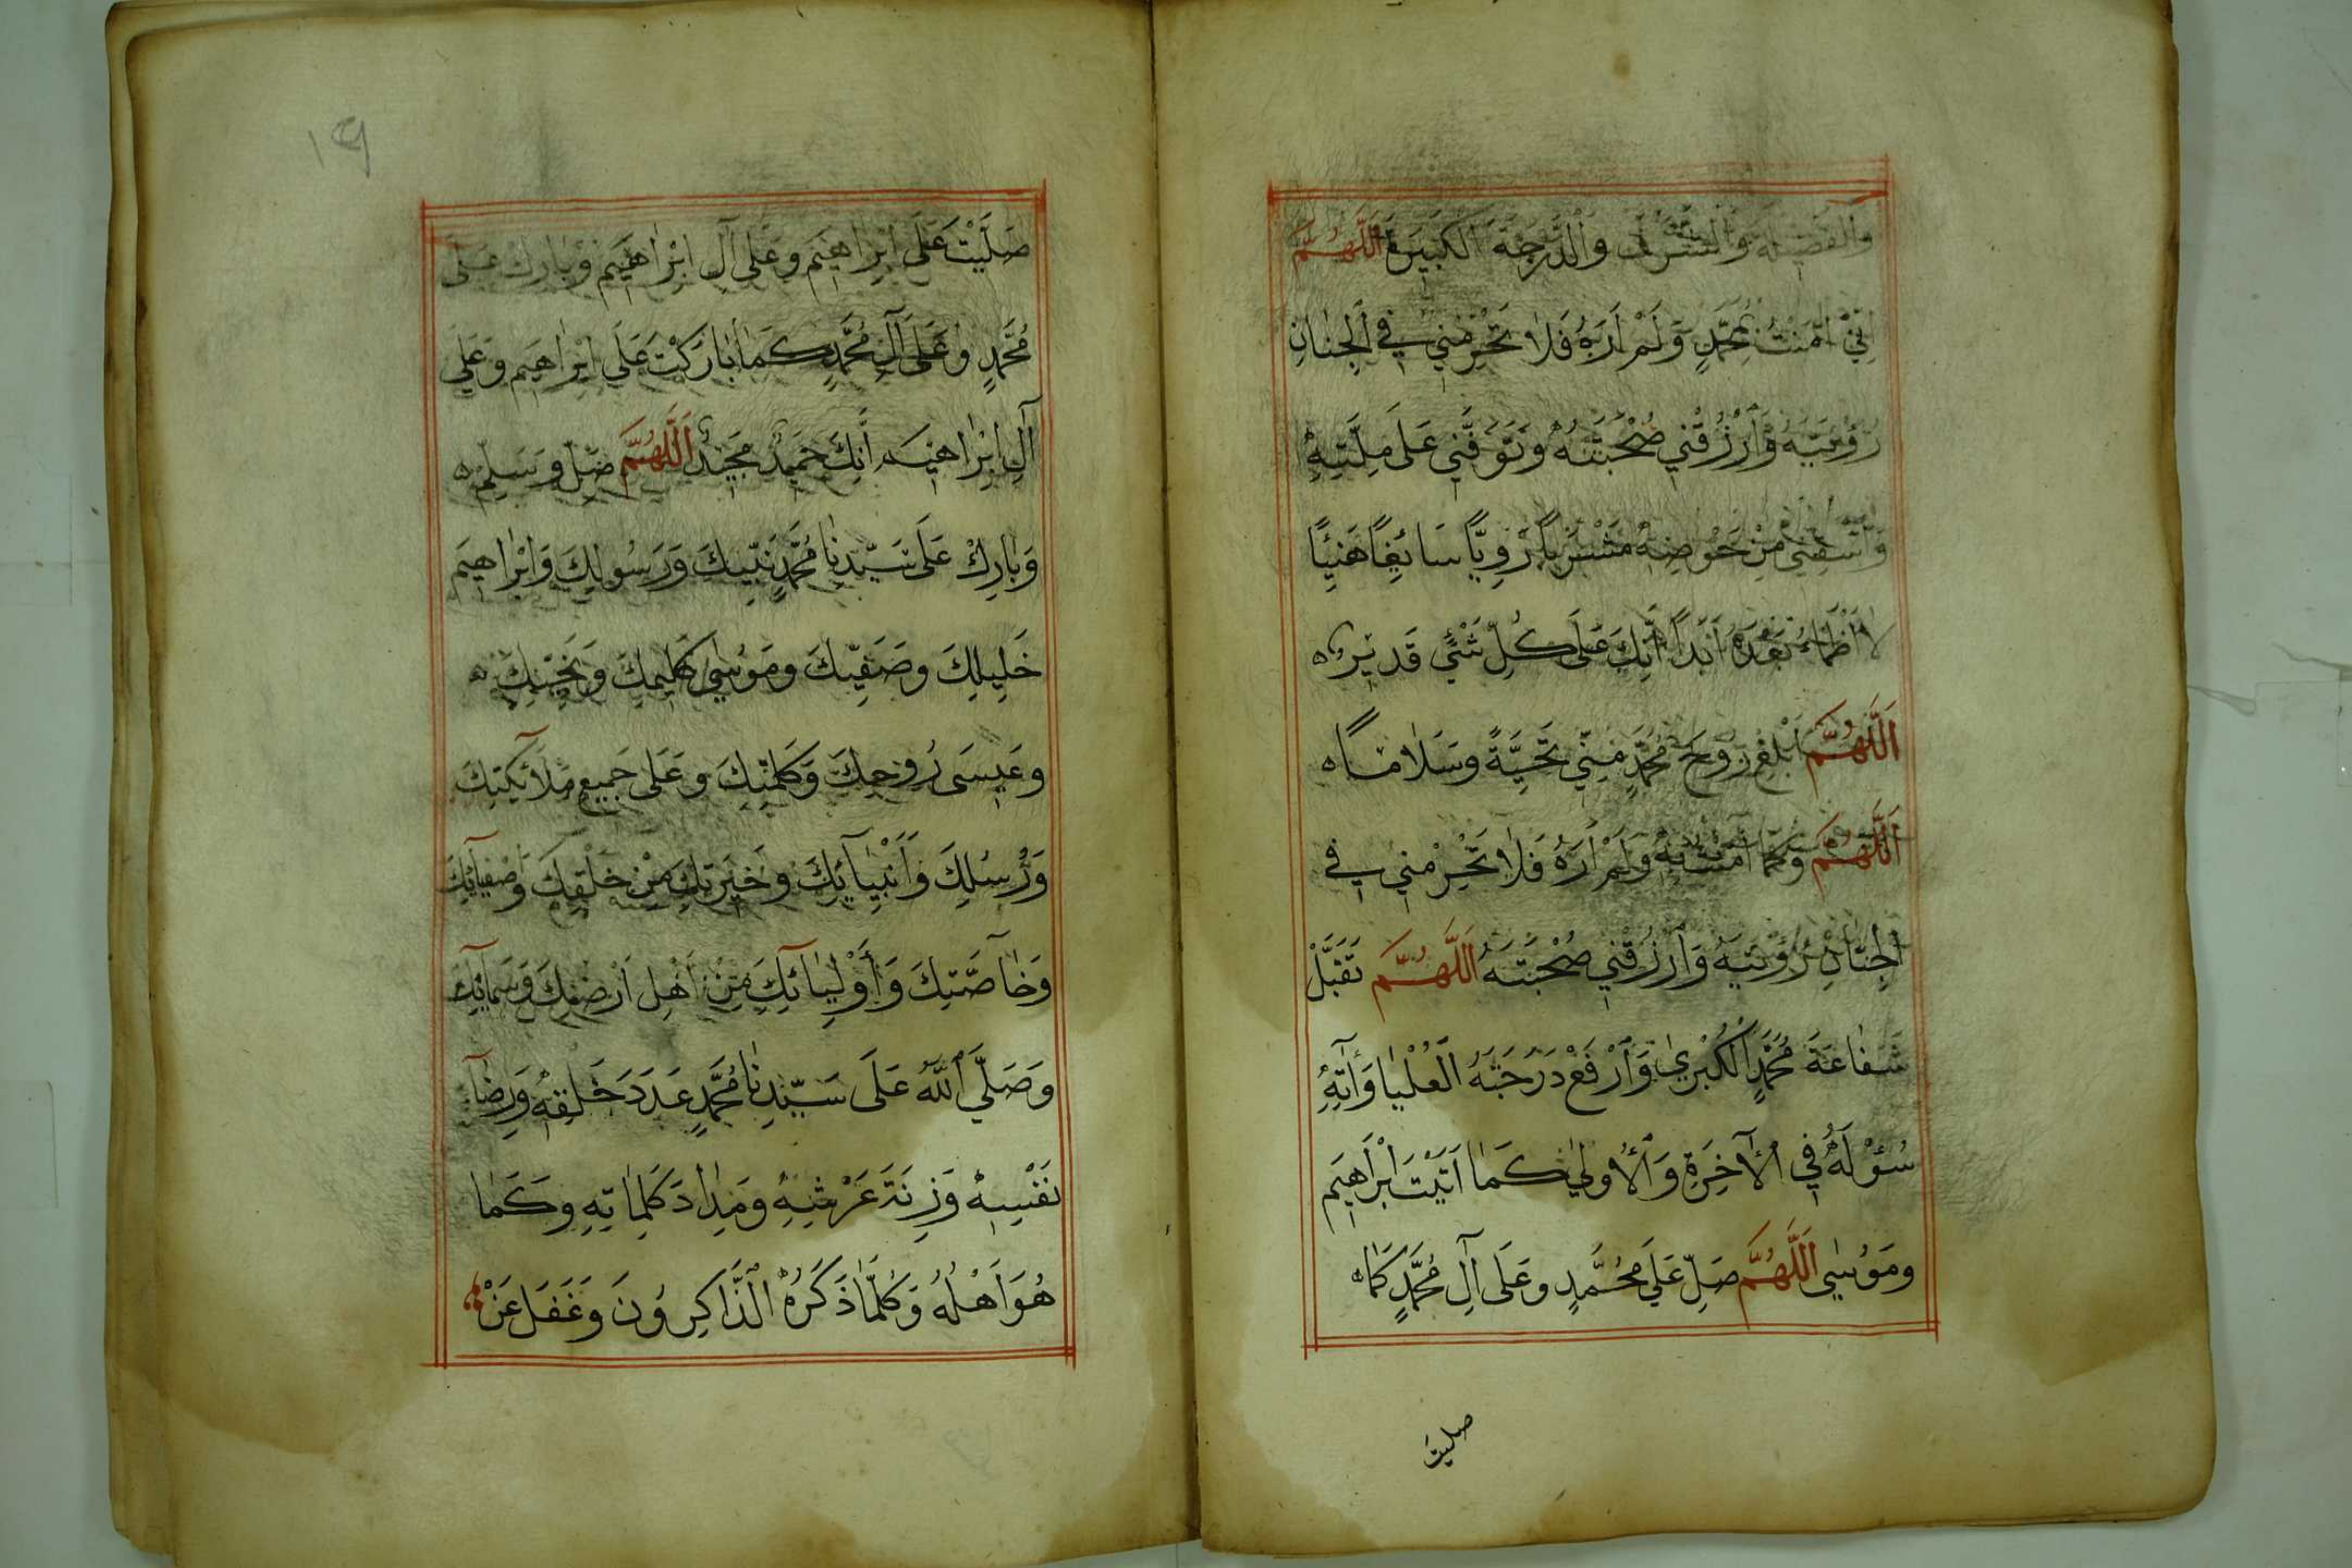 وَالْفَضِيلَةَ وَالشَّرَفَ وَالدَّرَجَةَ الْكَبِيرَةَ اَللّٰهُمَّ
اِنِّي اٰمَنْتُ بِمُحَمَّدٍ وَلَمْ اَرَهُ فَلَا تَحْرِمْنِي فِي الْجِنَانِ
رُؤْيَتَهُ وَارْزُقْنِي صُحْبَتَهُ وَتَوَفَّنِي عَلَى مِلَّتِهِ
وَاسْقِنِي مِنْ حَوْضِهِ مَشْرَبًا رَوِيًّا سَائِغًا هَنِيئًا
لَا اَظْمَاءُ بَعْدَهُ اَبَدًا اِنَّكَ عَلَى كُلِّ شَيْءٍ قَدِيرٌ ه
اَللّٰهُمَّ اَبْلِغْ رُوحَ مُحَمَّدٍ مِنِّي تَحِيَّةً وَسَلَامًا ه
اَللّٰهُمَّ وَكَمَا اٰمَنْتُ بِهِ وَلَمْ اَرَهُ فَلَا تَحْرِمْنِي فِي
الْجِنَانِ رُؤْيَتَهُ وَارْزُقْنِي صُحْبَتَهُ اَللّٰهُمَّ تَقَبَّلْ
شَفَاعَةَ مُحَمَّدٍ الْكُبْرٰي وَارْفَعْ دَرَجَتَهُ الْعُلْيَا وَاٰتِهِ
سُؤْلَهُ فِي الْاٰخِرَةِ وَالْاُولٰي كَمَا اٰتَيْتَ اِبْرَاهِيمَ
وَمُوسٰي اَللّٰهُمَّ صَلِّ عَلَي مُحَمَّدٍ وَعَلَى اٰلِ مُحَمَّدٍ كَمَا ه
صليت
١٩
صَلَّيْتَ عَلَى اِبْرَاهِيمَ وَعَلَى اٰلِ اِبْرَاهِيمَ وَبَارِكْ عَلَى
مُحَمَّدٍ وَعَلَى اٰلِ مُحَمَّدٍ كَمَا بَارَكْتَ عَلَى اِبْرَاهِيمَ وَعَلَي
اٰلِ اِبْرَاهِيمَ اِنَّكَ حَمِيدٌ مَجِيدٌ اَللّٰهُمَّ صَلِّ وَسَلِّمْ ه
وَبَارِكْ عَلَى سَيِّدِنَا مُحَمَّدٍ نَبِيِّكَ وَرَسُولِكَ وَاِبْرَاهِيمَ
خَلِيلِكَ وَصَفِيِّكَ وَمُوسٰي كَلِيمِكَ وَنَجِيِّكَ ه
وَعِيسَى رُوحِكَ وَكَلِمَتِكَ وَعَلَى جَمِيعِ مَلَآئِكَتِكَ
وَرُسُلِكَ وَاَنْبِيَآئِكَ وَخِيَرَتِكَ مِنْ خَلْقِكَ وَاَصْفِيَآئِكَ
وَخَآصَّتِكَ وَاَوْلِيَآئِكَ مِنْ اَهْلِ اَرْضِكَ وَسَمَآئِكَ
وَصَلَّي اللّٰهُ عَلَى سَيِّدِنَا مُحَمَّدٍ عَدَدَ خَلْقِهِ وَرِضَآ
نَفْسِهِ وَزِنَةَ عَرْشِهِ وَمِدَادَ كَلِمَاتِهِ وَكَمَا
هُوَ اَهْلُهُ وَكُلَّمَا ذَكَرَهُ الذَّاكِرُونَ وَغَفَلَ عَنْ